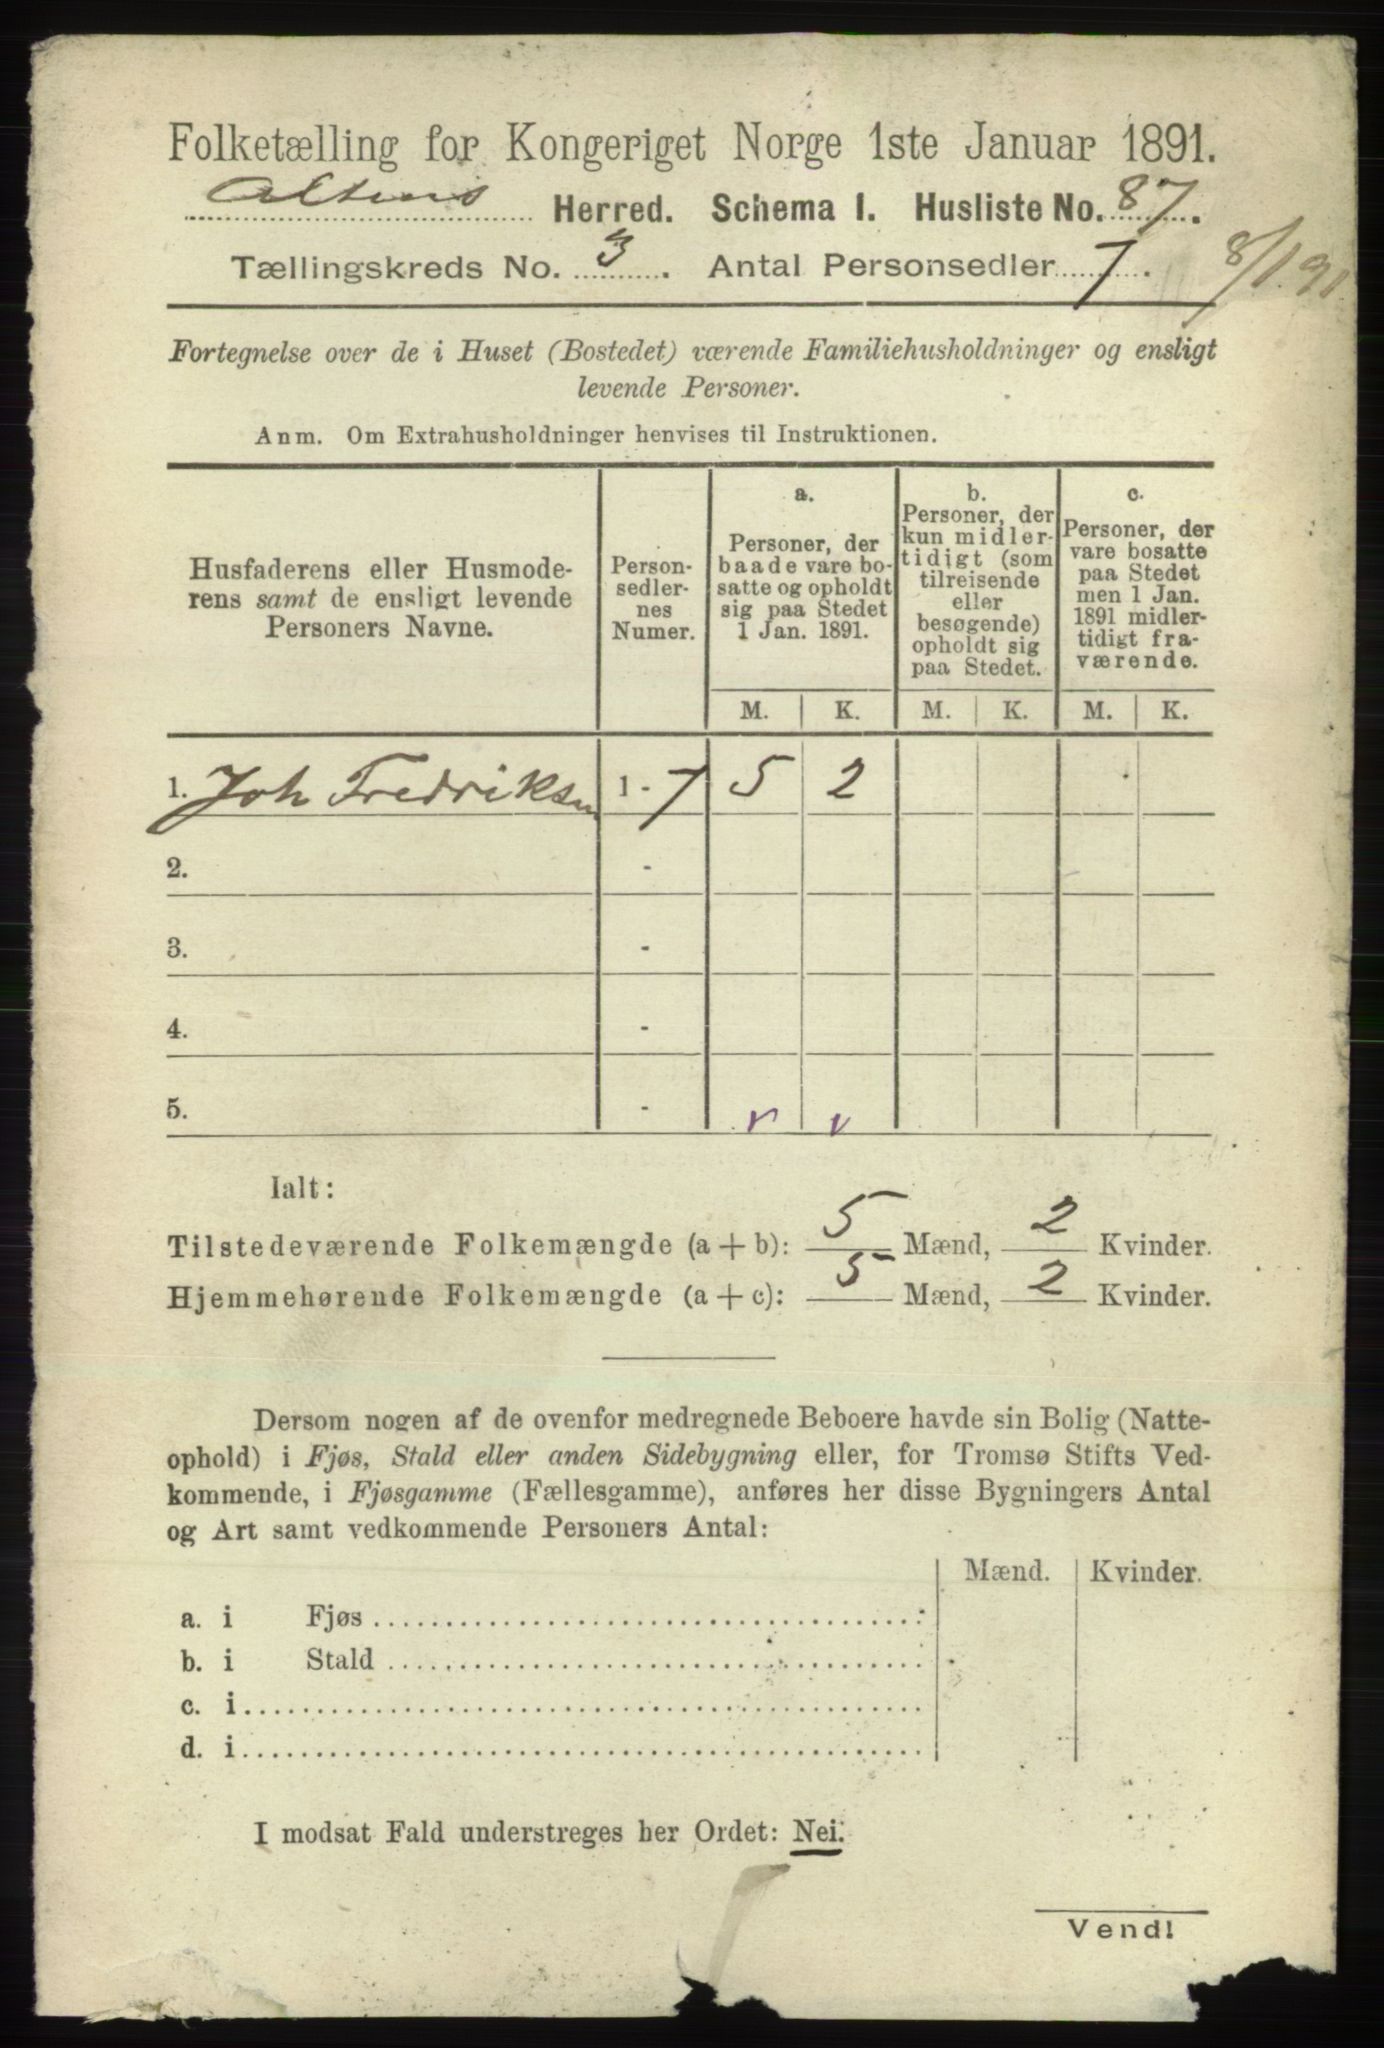 Folketælling for Kongeriget Norge 1ste Januar 1891.
Altens Herred. Schema I. Husliste No. 87.
Tællingskreds No. 3. Antal Personsedler 7.
8/1 91
Fortegnelse over de i Huset (Bostedet) værende Familiehusholdninger og ensligt
levende Personer.
Anm. Om Extrahusholdninger henvises til Instruktionen.
Husfaderens eller Husmode-
rens samt de ensligt levende
Personers Navne.
Person-
sedler-
nes
Numer.
a.
Personer, der
baade vare bo-
satte og opholdt
sig paa Stedet
1 Jan. 1891.
b.
Personer, der
kun midler-
tidigt (som
tilreisende
eller
besøgende)
opholdt sig
paa Stedet.
c.
Personer, der
vare bosatte
paa Stedet
men 1 Jan.
1891 midler-
tidigt fra-
værende.
M. K. M. K. M. K.
1. Joh Fredriksen 1 - 7 5 2
2. -
3. -
4. -
5. -
Ialt:
Tilstedeværende Folkemængde (a + b): 5 Mænd, 2 Kvinder.
Hjemmehørende Folkemængde (a + c): 5 Mænd, 2 Kvinder.
Dersom nogen af de ovenfor medregnede Beboere havde sin Bolig (Natte-
ophold) i Fjøs, Stald eller anden Sidebygning eller, for Tromsø Stifts Ved-
kommende, i Fjøsgamme (Fællesgamme), anføres her disse Bygningers Antal
og Art samt vedkommende Personers Antal:
Mænd. Kvinder.
a. i Fjøs
b. i Stald
c. i
d. i
I modsat Fald understreges her Ordet: Nei.
Vend!